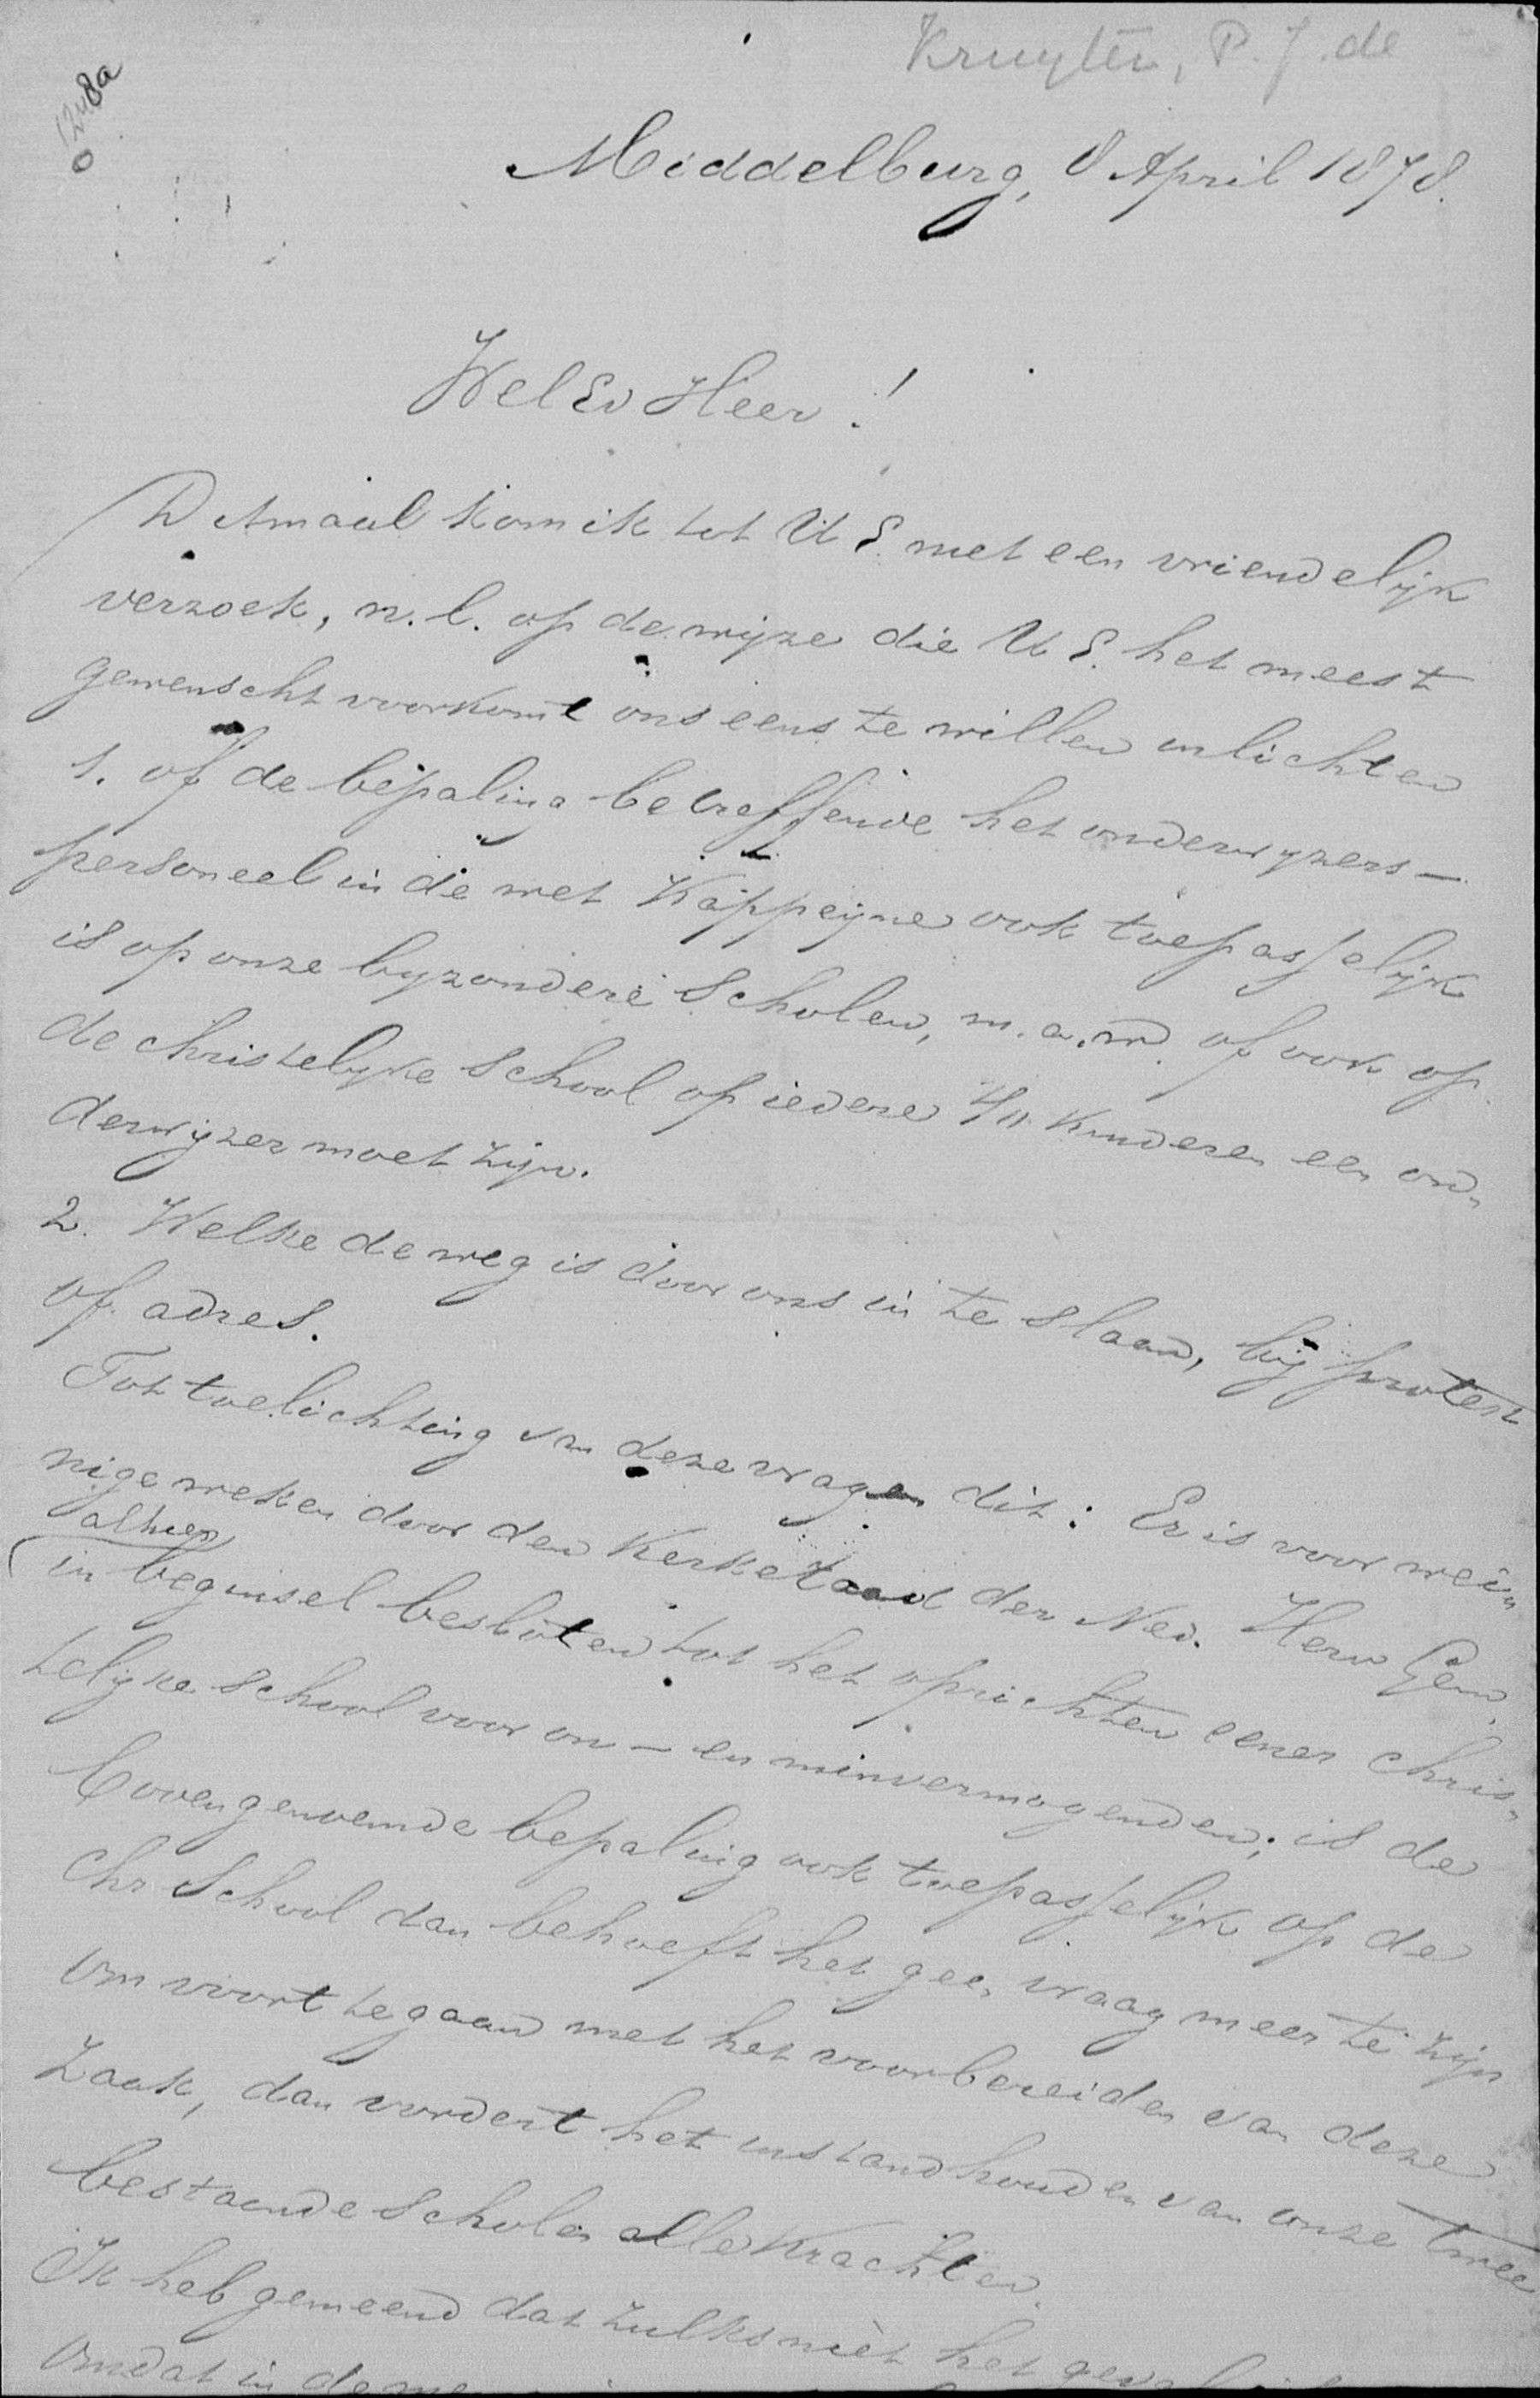 Kruyter, P. J. de
1248a
Middelburg, 8 April 1878.
WelEd Heer!
Ditmaal kom ik tot UE. met een vriendelijk
verzoek, n.l. op de wijze die UE. het meest
gewenscht voorkomt ons eens te willen inlichten
1. of de bepaling betreffende het onderwijzers-
personeel in de wet Kappeijne ook toepasselijk
is op onze byzondere Scholen, m.a.w. of ook op
de christelyke School op iedere 40 kinderen een on-
derwijzer moet zijn.
2. Welke de weg is door ons in te slaan, bij protest
of adres.
Tot toelichting van deze vragen dit: Er is voor wei-
nige weken door den Kerkeraad der Ned. Herv Gem.
alhier
in beginsel besloten tot het oprichten eener chris-
telyke School voor on- en minvermogenden; is de
bovengenoemde bepaling ook toepasselijk op de
Chr School dan behoeft het geen vraag meer te zijn
om voort te gaan met het voorbereiden van deze
zaak, dan vordert het instandhouden van onze twee
bestaende Scholen alle krachten.
Ik heb gemeend dat zulks niet het geval
omdat in de